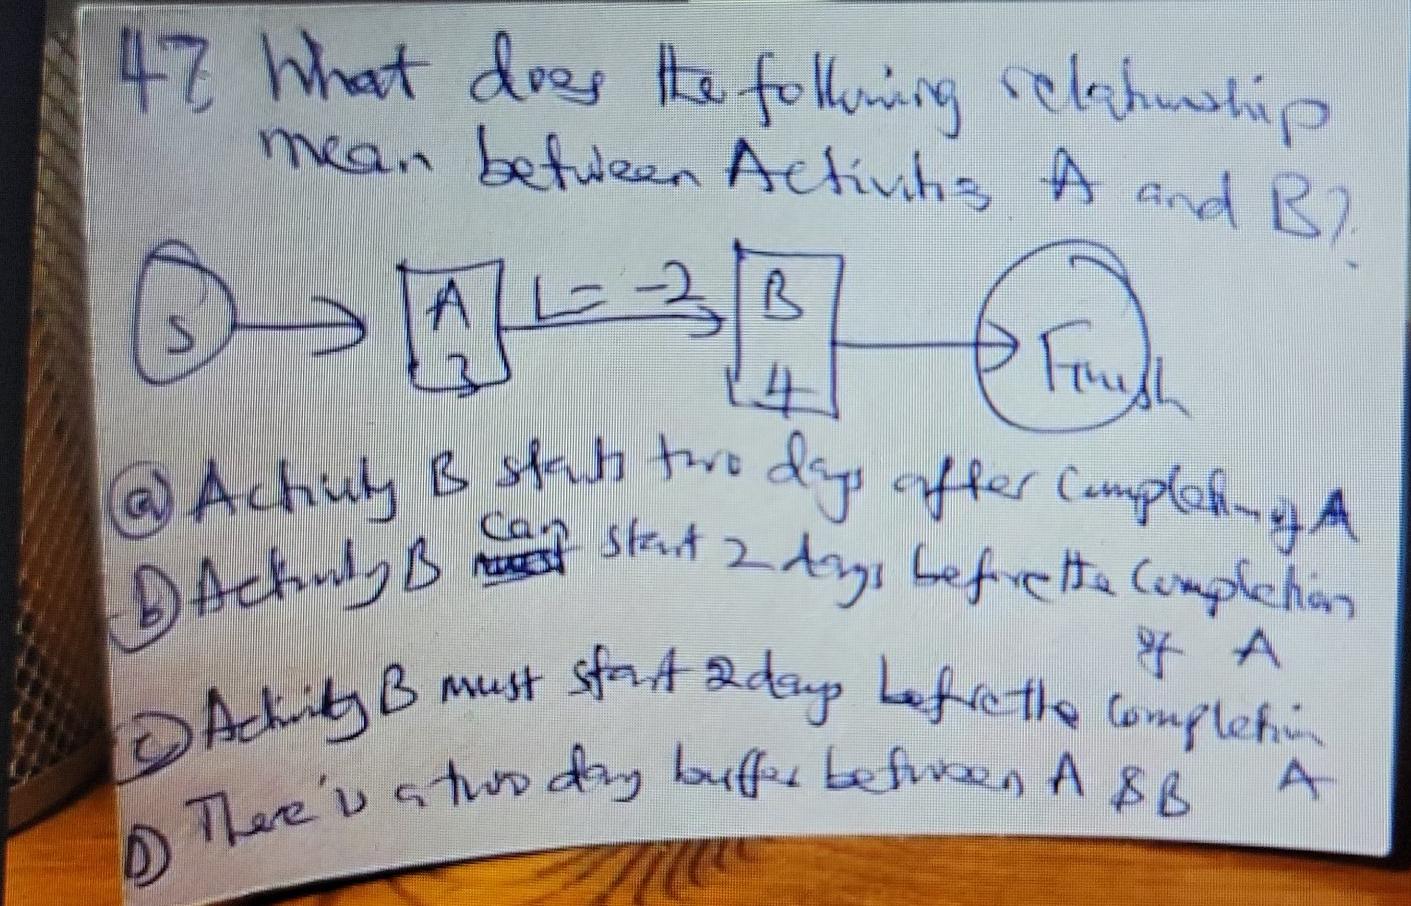 47. What does the following relationship
mean between Activities A and B?
S
A
3
L = -2
B
4
Finish
(a) Activity B starts two days after completing A
(b) Activity B can start 2 days before the completion
of A
(c) Activity B must start 2 days before the completion
A
(D) There is a two day buffer between A & B